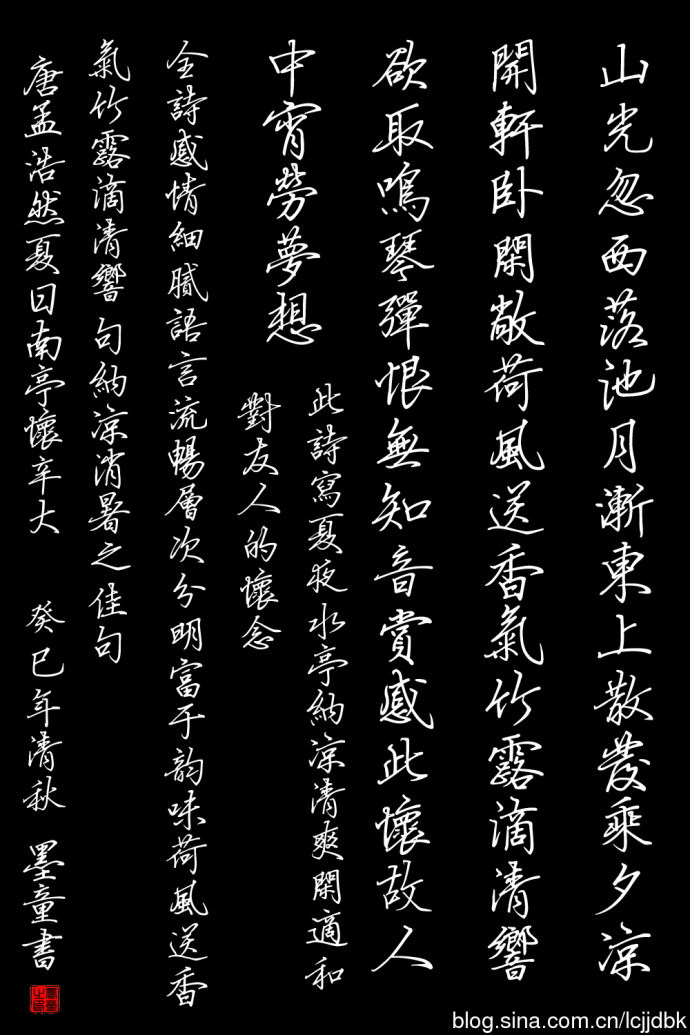 山光忽西落池月漸東上散發乘夕涼
開軒卧閑敞荷風送香氣竹露滴清響
欲取鳴琴彈恨無知音賞感此懷故人
中宵勞夢想
此詩寫夏夜水亭納涼清爽閑適和
對友人的懷念
全詩感情細膩語言流暢層次分明富于韵味荷風送香
氣竹露滴清響句納涼消暑之佳句
唐孟浩然夏日南亭懷辛大 癸巳年清秋 墨童書
blog.sina.com.cn/lcjjdbk